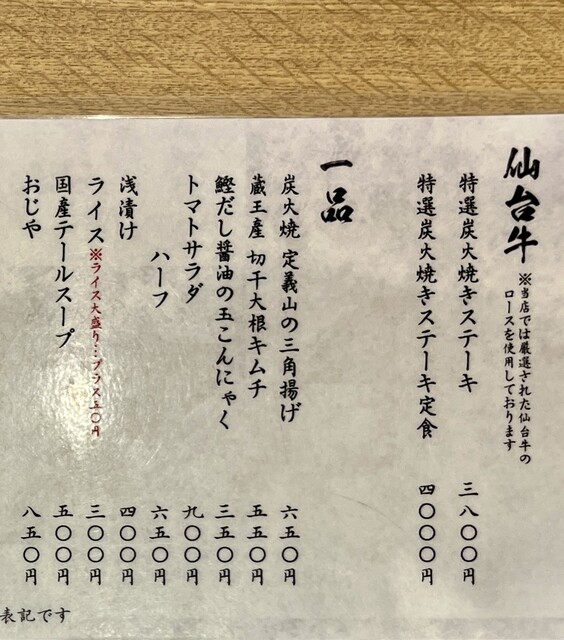 仙台牛
※当店では厳選された仙台牛の
ロースを使用しております
特選炭火焼きステーキ 三八〇〇円
特選炭火焼きステーキ定食 四〇〇〇円
一品
炭火焼 定義山の三角揚げ 六五〇円
蔵王産 切干大根キムチ 五五〇円
鰹だし醤油の玉こんにゃく 三五〇円
トマトサラダ 九〇〇円
ハーフ 六五〇円
浅漬け 四〇〇円
ライス※ライス大盛り…プラス五〇円 三〇〇円
国産テールスープ 五〇〇円
おじや 八五〇円
表記です